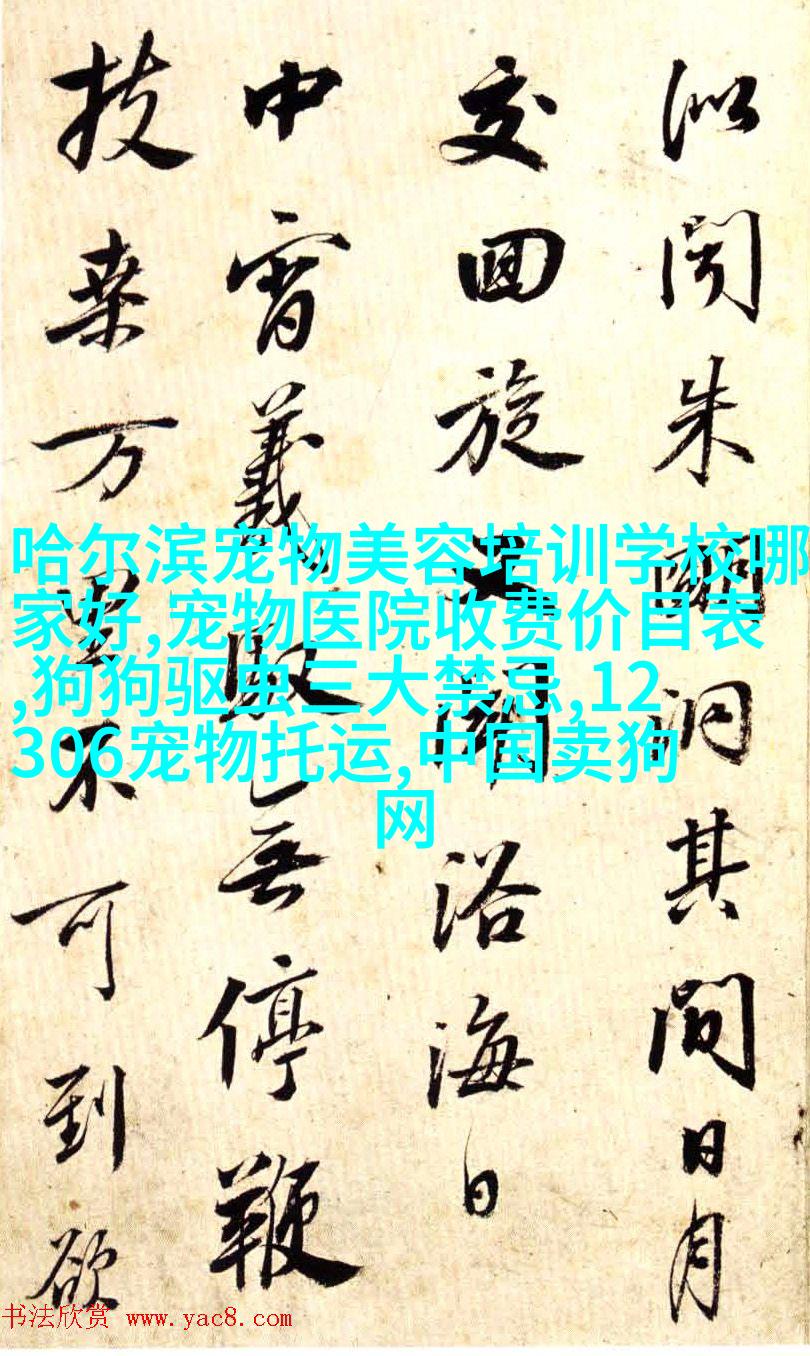 似闻朱明洞其間日月
交回旋又聞浴海日
中宵羲馭无停鞭
扶桒万里不可到欲
哈尔滨宠物美容培训学校哪
家好,宠物医院收费价目表
,狗狗驱虫三大禁忌,12
306宠物托运,中国卖狗
网
书法欣赏 www.yac8.com